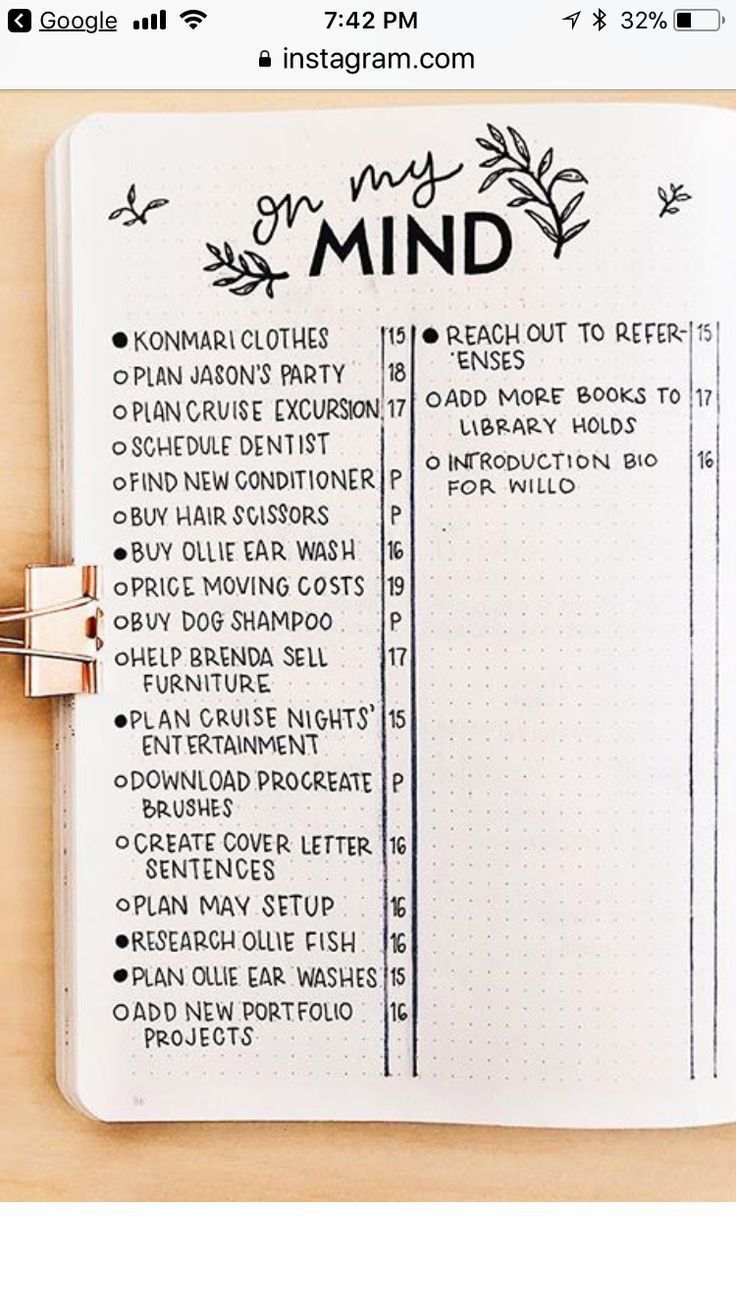 Google 7:42 PM 32%
instagram.com
on my
MIND
● KONMARI CLOTHES 15
○ PLAN JASON'S PARTY 18
○ PLAN CRUISE EXCURSION 17
○ SCHEDULE DENTIST
○ FIND NEW CONDITIONER P
○ BUY HAIR SCISSORS P
● BUY OLLIE EAR WASH 16
○ PRICE MOVING COSTS 19
○ BUY DOG SHAMPOO P
○ HELP BRENDA SELL 17
FURNITURE
● PLAN CRUISE NIGHTS' 15
ENTERTAINMENT
○ DOWNLOAD PROCREATE P
BRUSHES
○ CREATE COVER LETTER 16
SENTENCES
○ PLAN MAY SETUP 16
● RESEARCH OLLIE FISH 16
● PLAN OLLIE EAR WASHES 15
○ ADD NEW PORTFOLIO 16
PROJECTS
● REACH OUT TO REFER- 15
'ENSES
○ ADD MORE BOOKS TO 17
LIBRARY HOLDS
○ INTRODUCTION BIO 16
FOR WILLO
86